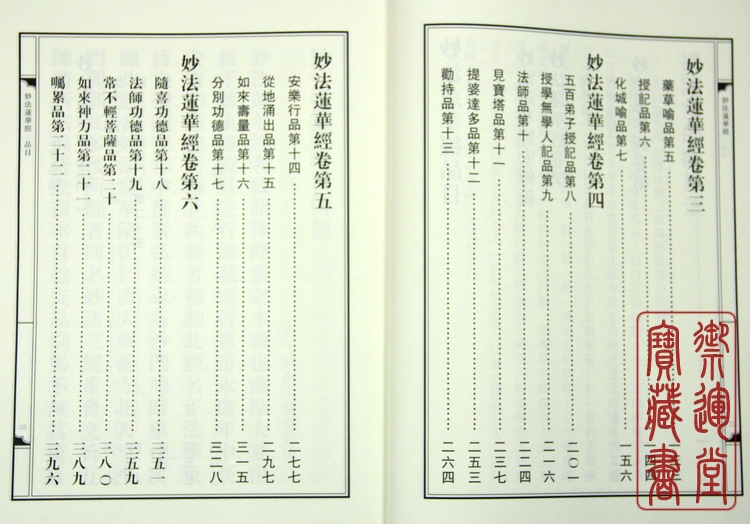 妙法蓮華經
妙法蓮華經卷第三
藥草喻品第五
授記品第六
化城喻品第七 一五六
妙法蓮華經卷第四
五百弟子授記品第八 二〇一
授學無學人記品第九 二一六
法師品第十 二二四
見寶塔品第十一 二三七
提婆達多品第十二 二五三
勸持品第十三 二六四
妙法蓮華經卷第五
安樂行品第十四 二七七
從地涌出品第十五 二九七
如來壽量品第十六 三一五
分別功德品第十七 三二八
妙法蓮華經卷第六
隨喜功德品第十八 三五一
法師功德品第十九 三五九
常不輕菩薩品第二十 三八〇
如來神力品第二十一 三八九
囑累品第二十二 三九六
妙法蓮華經 品目
禦運堂
寶藏書